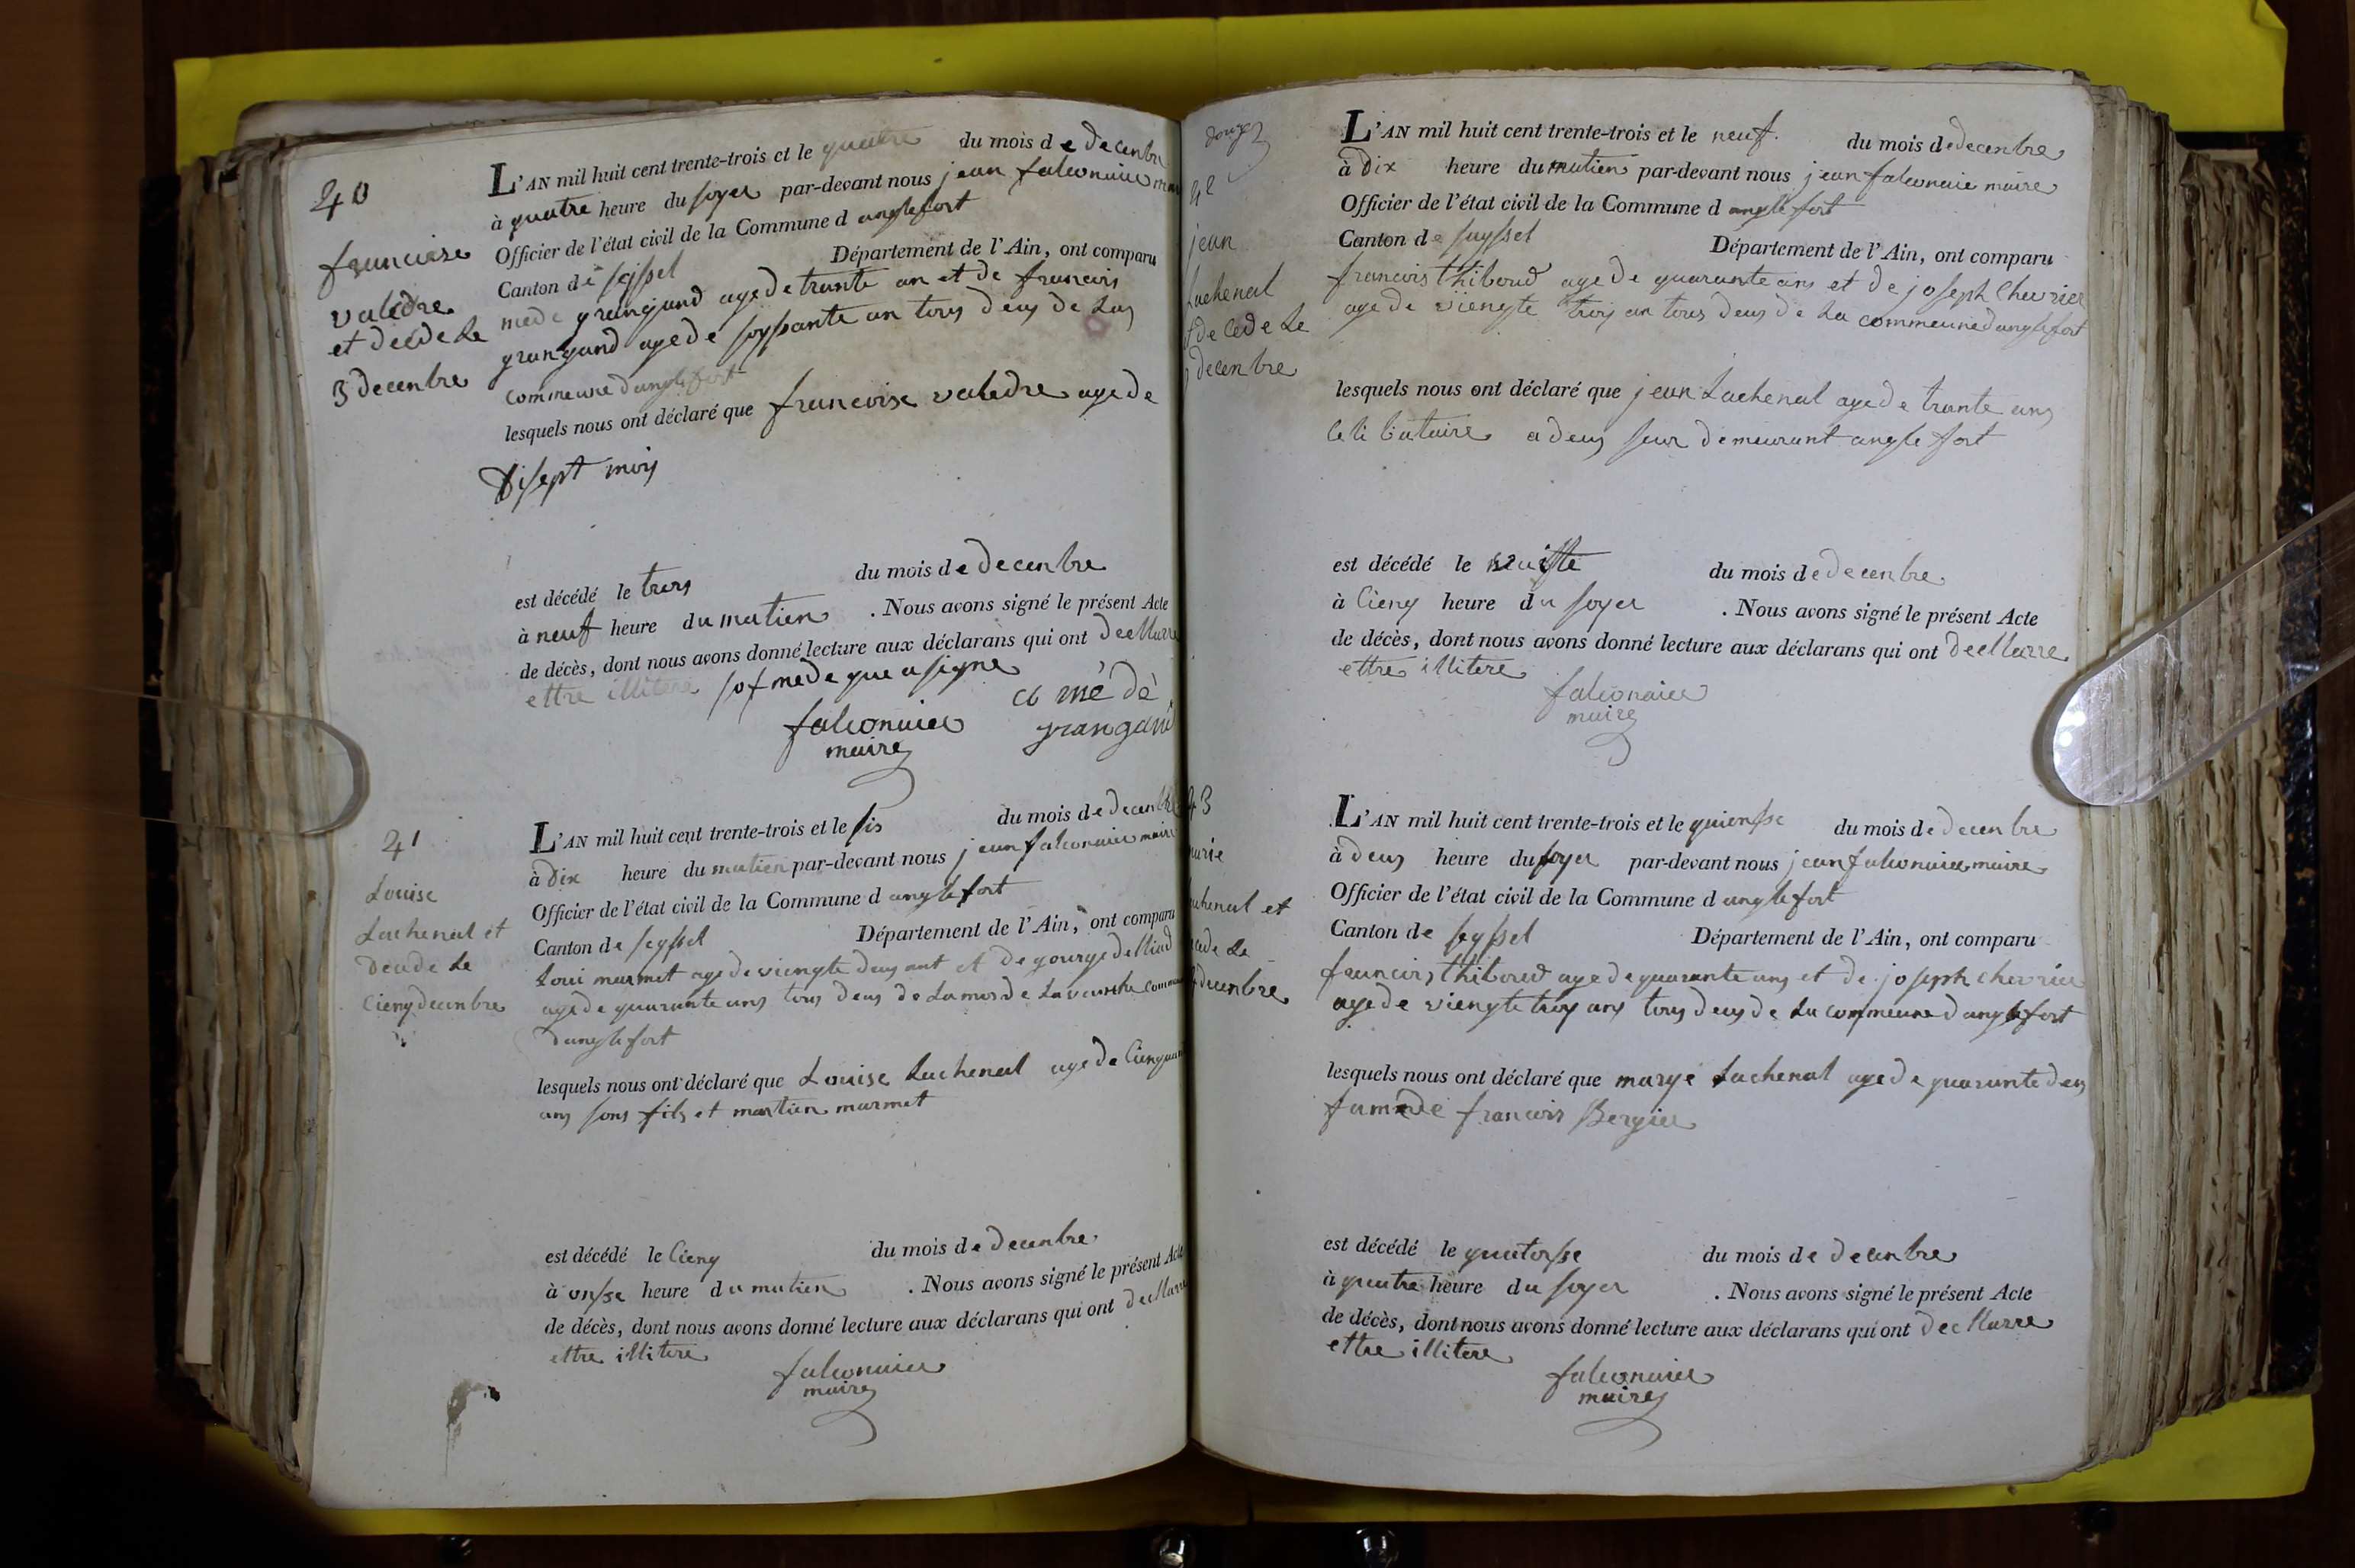 40
francoise
valedre
et decede le
3 decenbre
L'AN mil huit cent trente-trois et le quatre du mois de decenbre
à quatre heure du soyer par-devant nous jean falconnier
Officier de l'état civil de la Commune d anglefort
Canton de seissel Département de l'Ain, ont comparu
mede grangand age de trante an et de francois
grangand age de soyssante an tous deus de las
commeune d anglefort
lesquels nous ont déclaré que francoise valedre age de
disept mois
est décédé le trois du mois de decenbre
à neuf heure du matien . Nous avons signé le présent Acte
de décès, dont nous avons donné lecture aux déclarans qui ont decllarre
ettre illitere sof mede que a signe
falconnier a mé dè
maire grangand
41
Louise
Lachenal et
decede le
cienq decenbre
L'AN mil huit cent trente-trois et le sis du mois de decenbre
à dix heure du matien par-devant nous jean falconnier maire
Officier de l'état civil de la Commune d anglefort
Canton de seyssel Département de l'Ain, ont comparu
Loui marmet age de viengte deus ant et de gourge delliad
age de quarante ans tous deus de commune
d anglefort
lesquels nous ont déclaré que Louise Lachenal age de
ans sons fils et martien marmet
est décédé le cienq du mois de decenbre
à onsse heure du matien . Nous avons signé le présent Acte
de décès, dont nous avons donné lecture aux déclarans qui ont decllarre
ettre illitere
falconnier
maire
douze
42
jean
Lachenal
decede le
decenbre
L'AN mil huit cent trente-trois et le neuf du mois de decenbre
à dix heure du matien par-devant nous jean falconnier maire
Officier de l'état civil de la Commune d anglefort
Canton de seyssel Département de l'Ain, ont comparu
francois thiboud age de quarante ans et de joseph chevrier
age de viengte troy an tous deus de la commeune d anglefort
lesquels nous ont déclaré que jean Lachenal age de trante ans
celibataire a deus seur demeurant anglefort
est décédé le du mois de decenbre
à cienq heure du soyer . Nous avons signé le présent Acte
de décès, dont nous avons donné lecture aux déclarans qui ont decllarre
ettre illitere
falconnier
maire
43
marie
Lachenal et
decede le
decenbre
L'AN mil huit cent trente-trois et le quiensse du mois de decenbre
à deus heure du soyer par-devant nous jean falconnier maire
Officier de l'état civil de la Commune d anglefort
Canton de seyssel Département de l'Ain, ont comparu
francois thiboud age de quarante ans et de joseph chevrier
age de viengte troy ans tous deus de la commeune d anglefort
lesquels nous ont déclaré que marye Lachenal age de quarante deus
fam de francois Bergier
est décédé le quatorsse du mois de decenbre
à quatre heure du soyer . Nous avons signé le présent Acte
de décès, dont nous avons donné lecture aux déclarans qui ont decllarre
ettre illitere
falconnier
maire